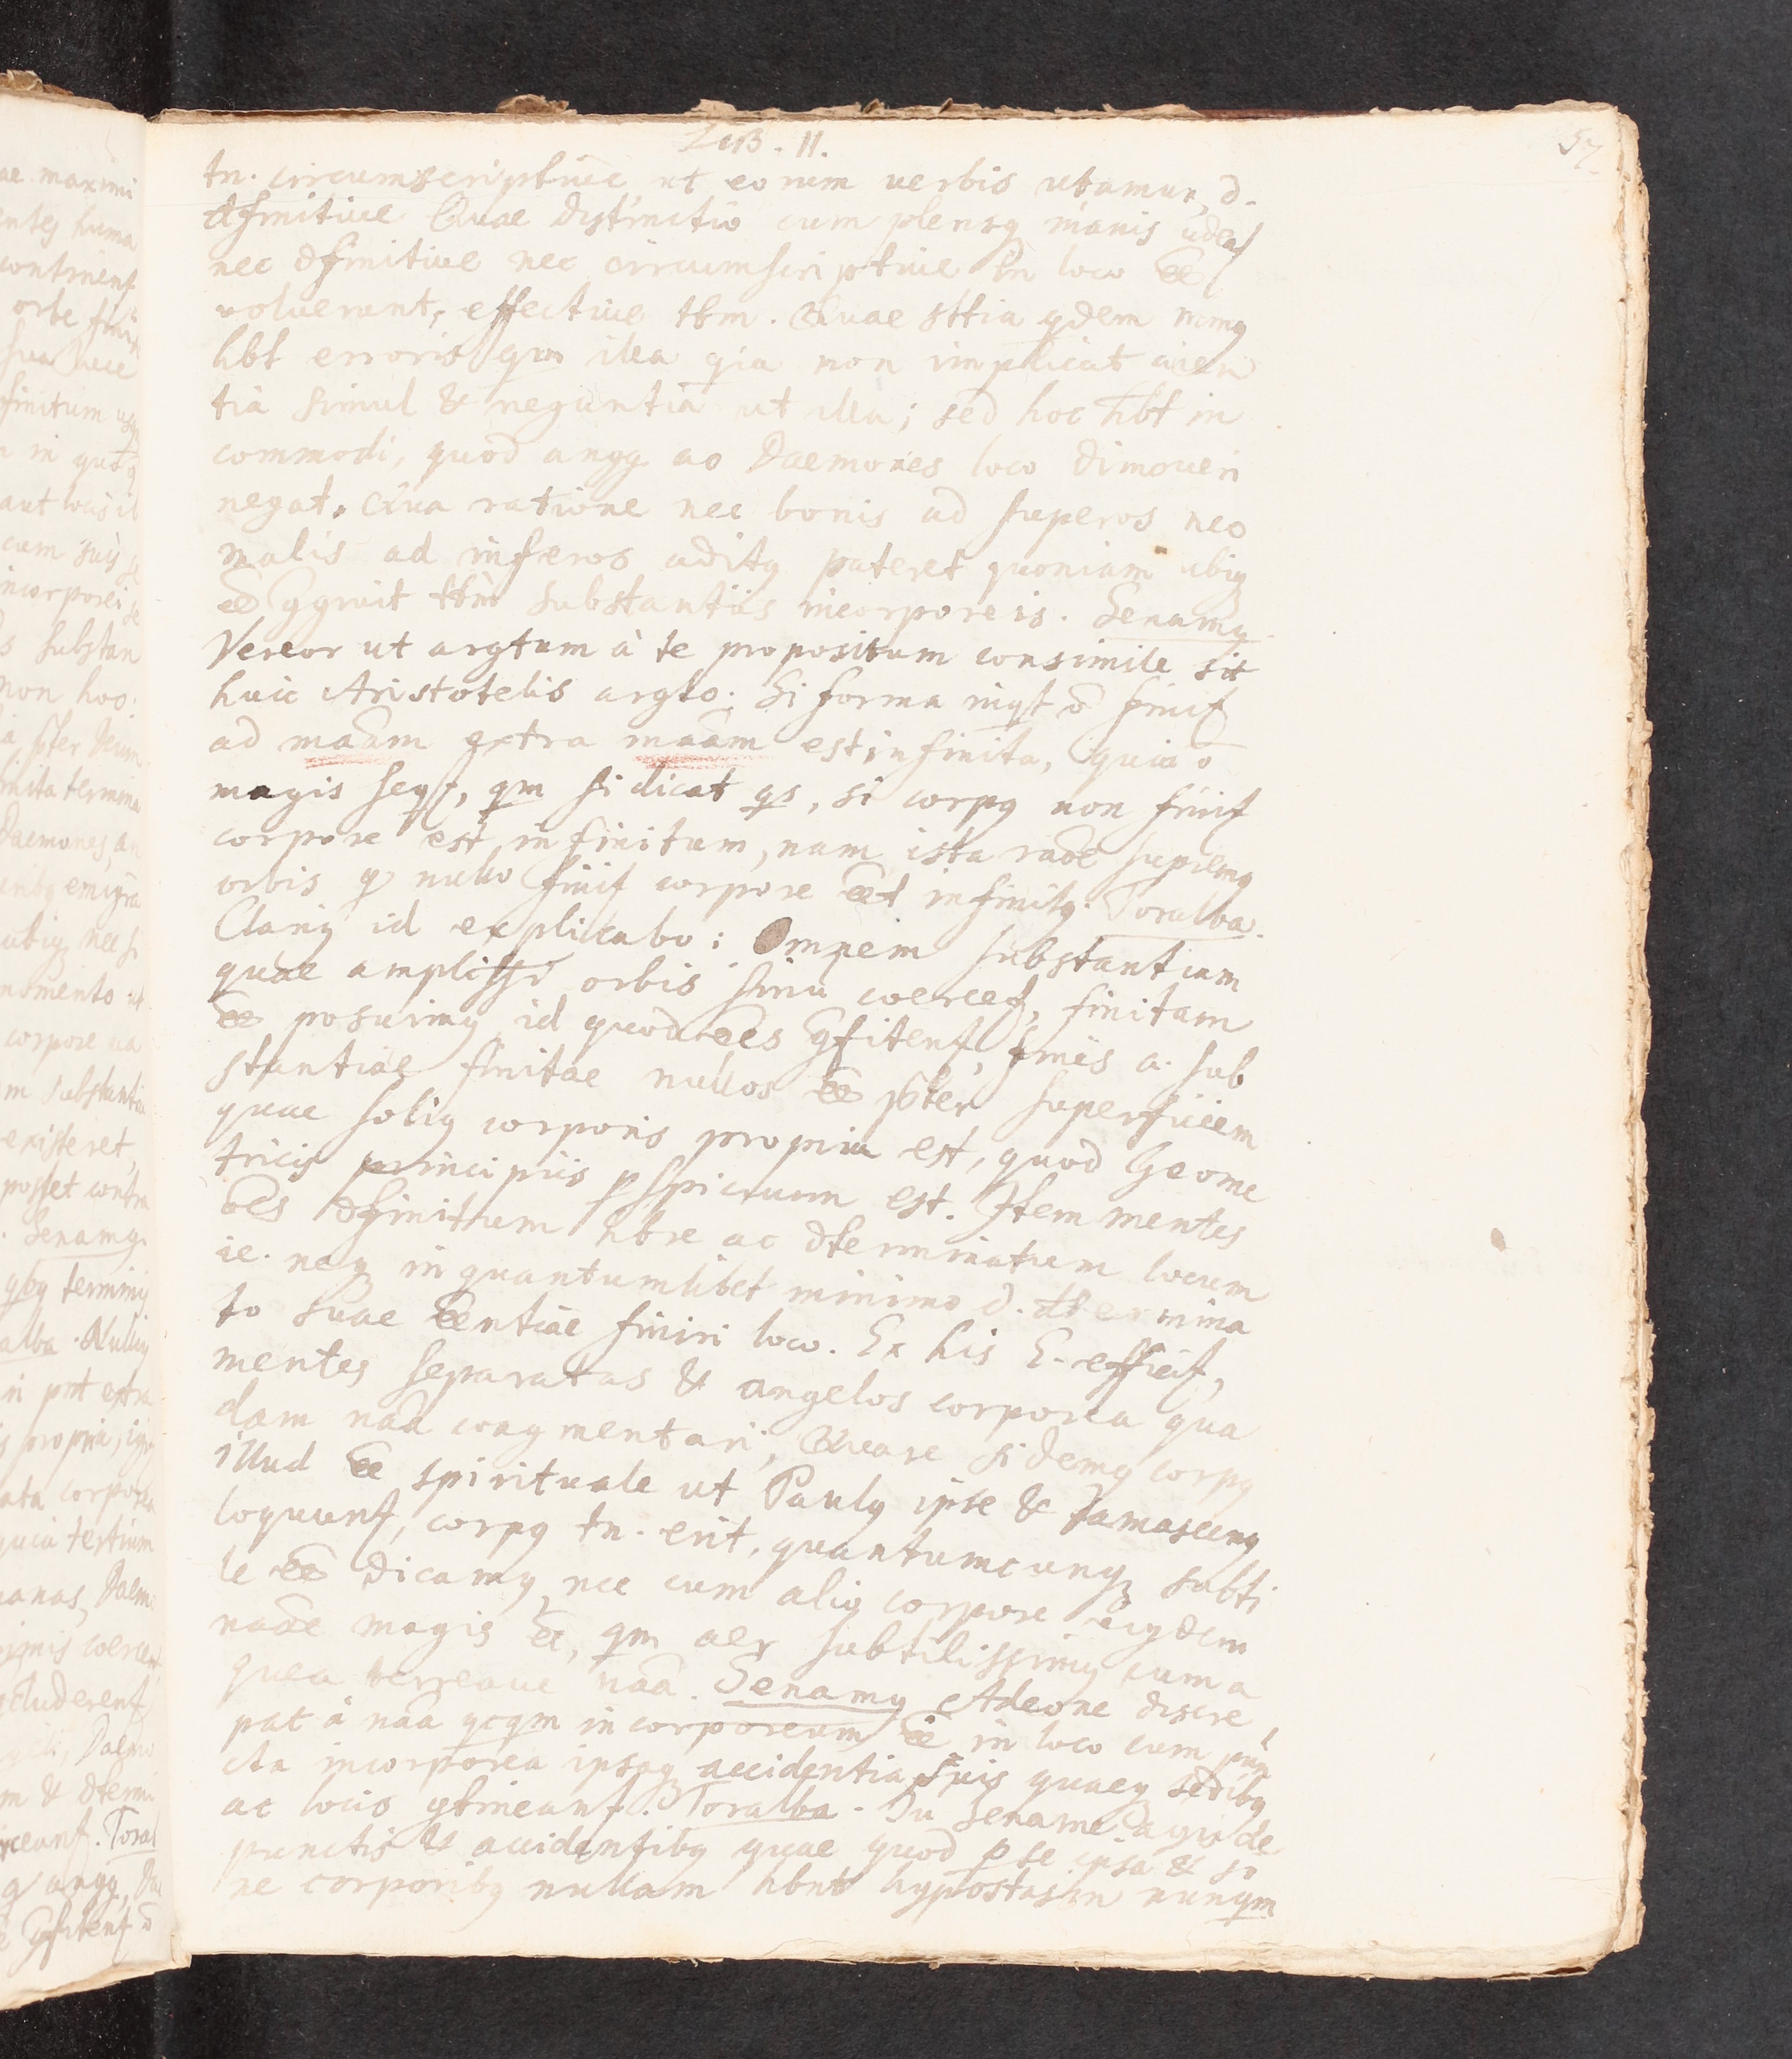 LIB. II.
57
tn. circumscriptiue ut eorum uerbis utamur, d.
dfinitiue Quae distinctio cum plerisq inanis uideat
nec dfinitiue nec circumscriptiue in loco ee
voluerunt, effectiue ttm. Quae sttia qdem ming
hbt erroris qm illa qia non implicat aien
tia simul & negantia ut illa; sed hoc hbt in
commodi, quod angg ac Daemones loco dimoueri
negat. Qua ratione nec bonis ad superos nec
malis ad inferos aditg pateret quoniam ubiq
ee ggruit ttm substantiis incorporeis. Senamg
Vereor ut argtum à te propositum consimile sit
huic Aristotelis argto. Si forma inqt õ finit
ad maam extra maam est infinita, quia õ
magis seqt, qm si dicat qs, si corpg non finit
corpore est infinitum, nam ista raõe supremg
orbis q nullo finit corpore eet infinitg. Toralba.
Clarig id explicabo: Omnem substantiam
quae amplissi orbis sinu coercet, finitam
ee posuimg id quod oes gfitent, fines a. sub
stantiae finitae nullos ee pter superficiem
quae solig corporis propria est, quod Geome
tricis principiis pspicuum est. Item mentes
oes dfinitum hbre ac dterminatum locum
ie. neq in quantumlibet minimo d. dtermina
to suae eentiae finiri loco. Ex his E. efficit,
mentes separatas & angelos corporea qua
dam naa coagmentari, Quare si demg corpg
illud ee spirituale ut Paulg ipse & Damasceng
loquunt, corpg tn. erit, quantumcunq subti
le ee dicamg, nec cum alio corpore eigdem
naoe magis ee, qm aer subtilissimg cum a
quea terreaue naa. Senamg Adeone discre
pat à naa qcqm incorporeum ee in loco cum pun
cta incorporea ipsaq accidentia suis quaeq sedibg
ac locis gtineant. Toralba. Tu Sename agis de
punctis & accidentibg quae quod p se ipsa & si
ne corporibg nullam hbnt hypostasin nunqm